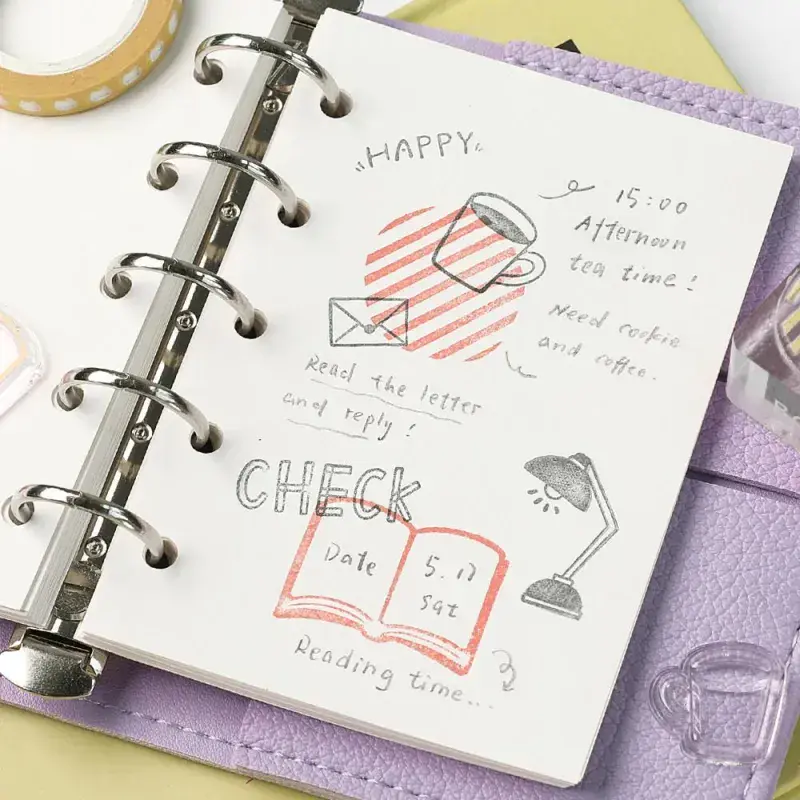 HAPPY
15:00
Afternoon
tea time!
Need cookie
and coffee.
Read the letter
and reply!
CHECK
Date
5.17
Sat
Reading time...